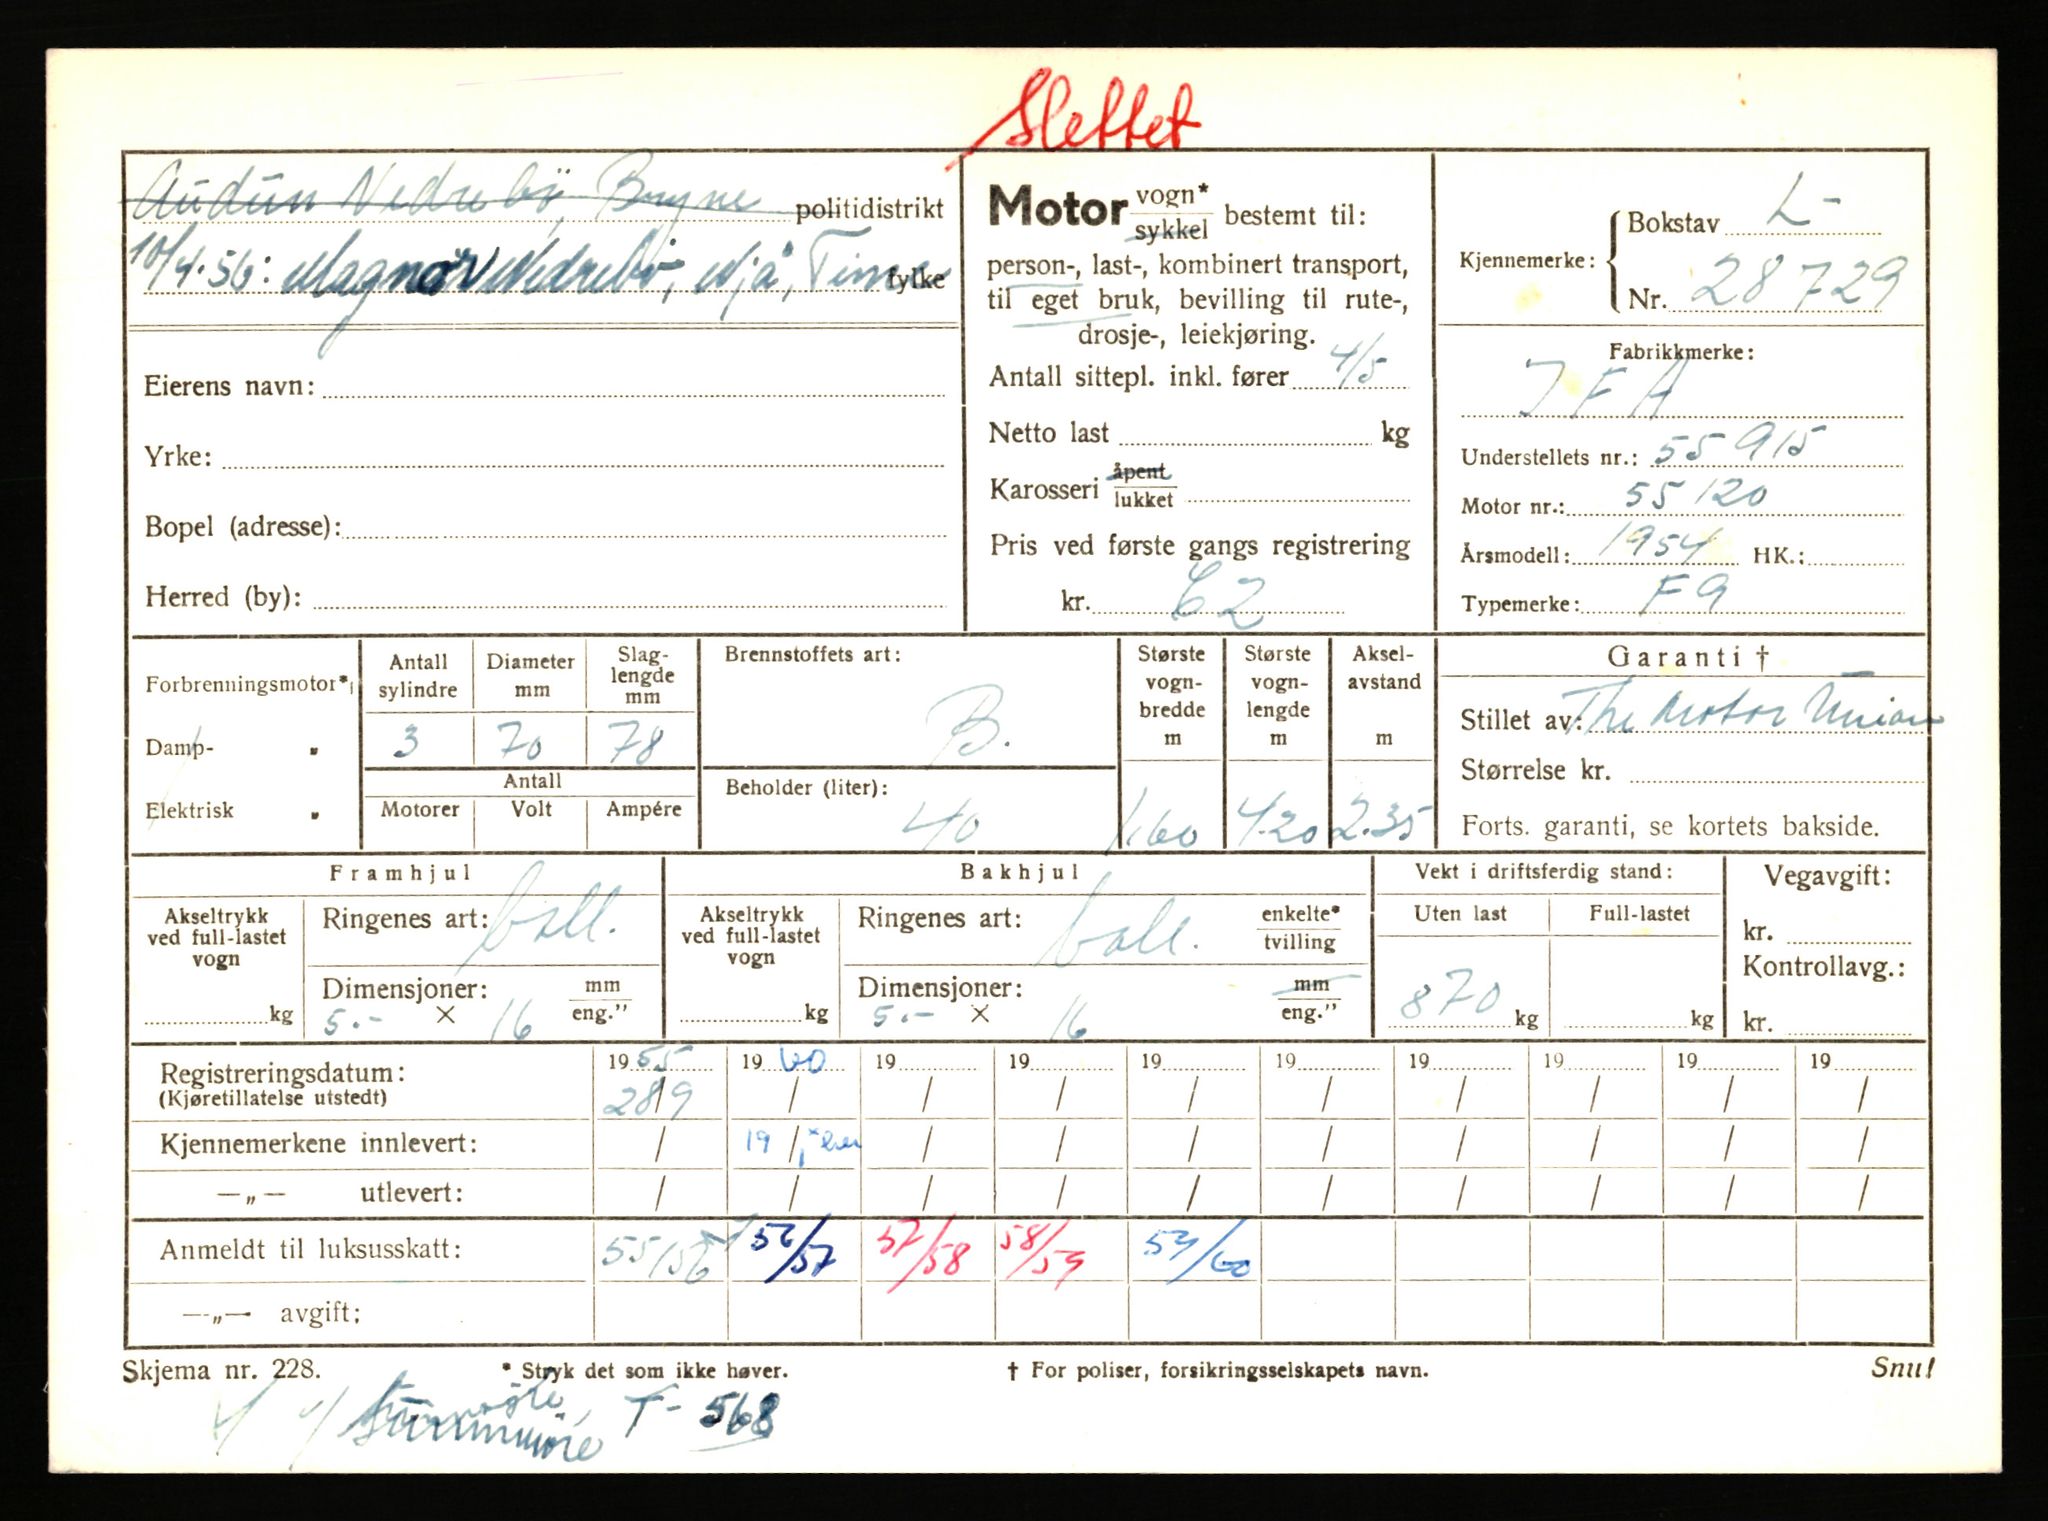 Slettet
Audun Nedrebö, Bryne politidistrikt
10/4.56: Magnor Nedrebö, Njå, Time fylke
Eierens navn:
Yrke:
Bopel (adresse):
Herred (by):
Motor vogn* sykkel bestemt til:
person-, last-, kombinert transport,
til eget bruk, bevilling til rute-,
drosje-, leiekjøring.
Antall sittepl. inkl. fører 4/5
Netto last kg
Karosseri åpent lukket
Pris ved første gangs registrering
kr. 62
Kjennemerke: Bokstav L-
Nr. 28729
Fabrikkmerke:
IFA
Understellets nr.: 55915
Motor nr.: 55120
Årsmodell: 1954 HK.:
Typemerke: F9
Forbrenningsmotor*
Damp- „
Elektrisk „
Antall sylindre
3
Diameter mm
70
Slag-
lengde
mm
78
Antall
Motorer Volt Ampére
Brennstoffets art:
B.
Beholder (liter):
40
Største
vogn-
bredde
m
1.60
Største
vogn-
lengde
m
4.20
Aksel-
avstand
m
2.35
Garanti †
Stillet av: The Motor Union
Størrelse kr.
Forts. garanti, se kortets bakside.
Framhjul
Akseltrykk
ved full-lastet
vogn
kg
Ringenes art: ball.
Dimensjoner: mm eng.”
5.- × 16
Bakhjul
Akseltrykk
ved full-lastet
vogn
kg
Ringenes art: ball. enkelte* tvilling
Dimensjoner: mm eng.”
5.- × 16
Vekt i driftsferdig stand:
Uten last Full-lastet
870 kg kg
Vegavgift:
kr.
Kontrollavg.:
kr.
Registreringsdatum: 1955 1960 19 19 19 19 19 19 19 19
(Kjøretillatelse utstedt) 28/9 / / / / / / / / /
Kjennemerkene innlevert: / 19 / / / / / / / / /
—„— utlevert: / / / / / / / / / /
Anmeldt til luksusskatt: 55/56 56/57 57/58 58/59 59/60
—„— avgift:
Skjema nr. 228. * Stryk det som ikke høver. † For poliser, forsikringsselskapets navn. Snu!
Sunnmøre T-568